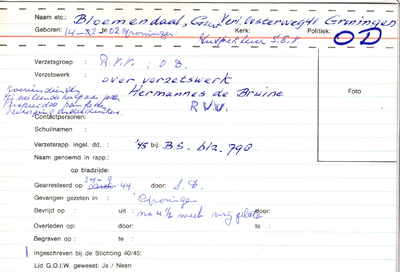 Naam etc.: Bloemendaal, Geert Verl. Oosterweg 41 Groningen
Geboren: 14-12 te 02 Groningen Kerk: Politiek: OD
Inspecteur
Verzetsgroep : R.V.V. , O.D.
Verzetswerk : over verzetswerk
Hermannes de Bruine
R.V.V.
Foto
Contactpersonen:
Schuilnamen :
Verzetsrapp. ingel. dd. : '45 bij B.S. blz. 790
Naam genoemd in rapp.:
op bladzijde:
Gearresteerd op 44 door: S.D.
Gevangen gezeten in : Groningen
Bevrijd op : uit : na 4½ week vrijgelaten door:
Overleden op: door:
Begraven op : te :
Ingeschreven bij de Stichting 40/45:
Lid G.O.I.W. geweest: Ja / Neen